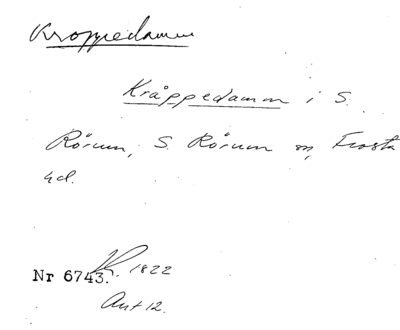 Kroppedamm
Kråppedamm i S.
Rörum, S. Rörum sn, Frosta
hd.
Nr 6743. LK. 1822
Akt 12.